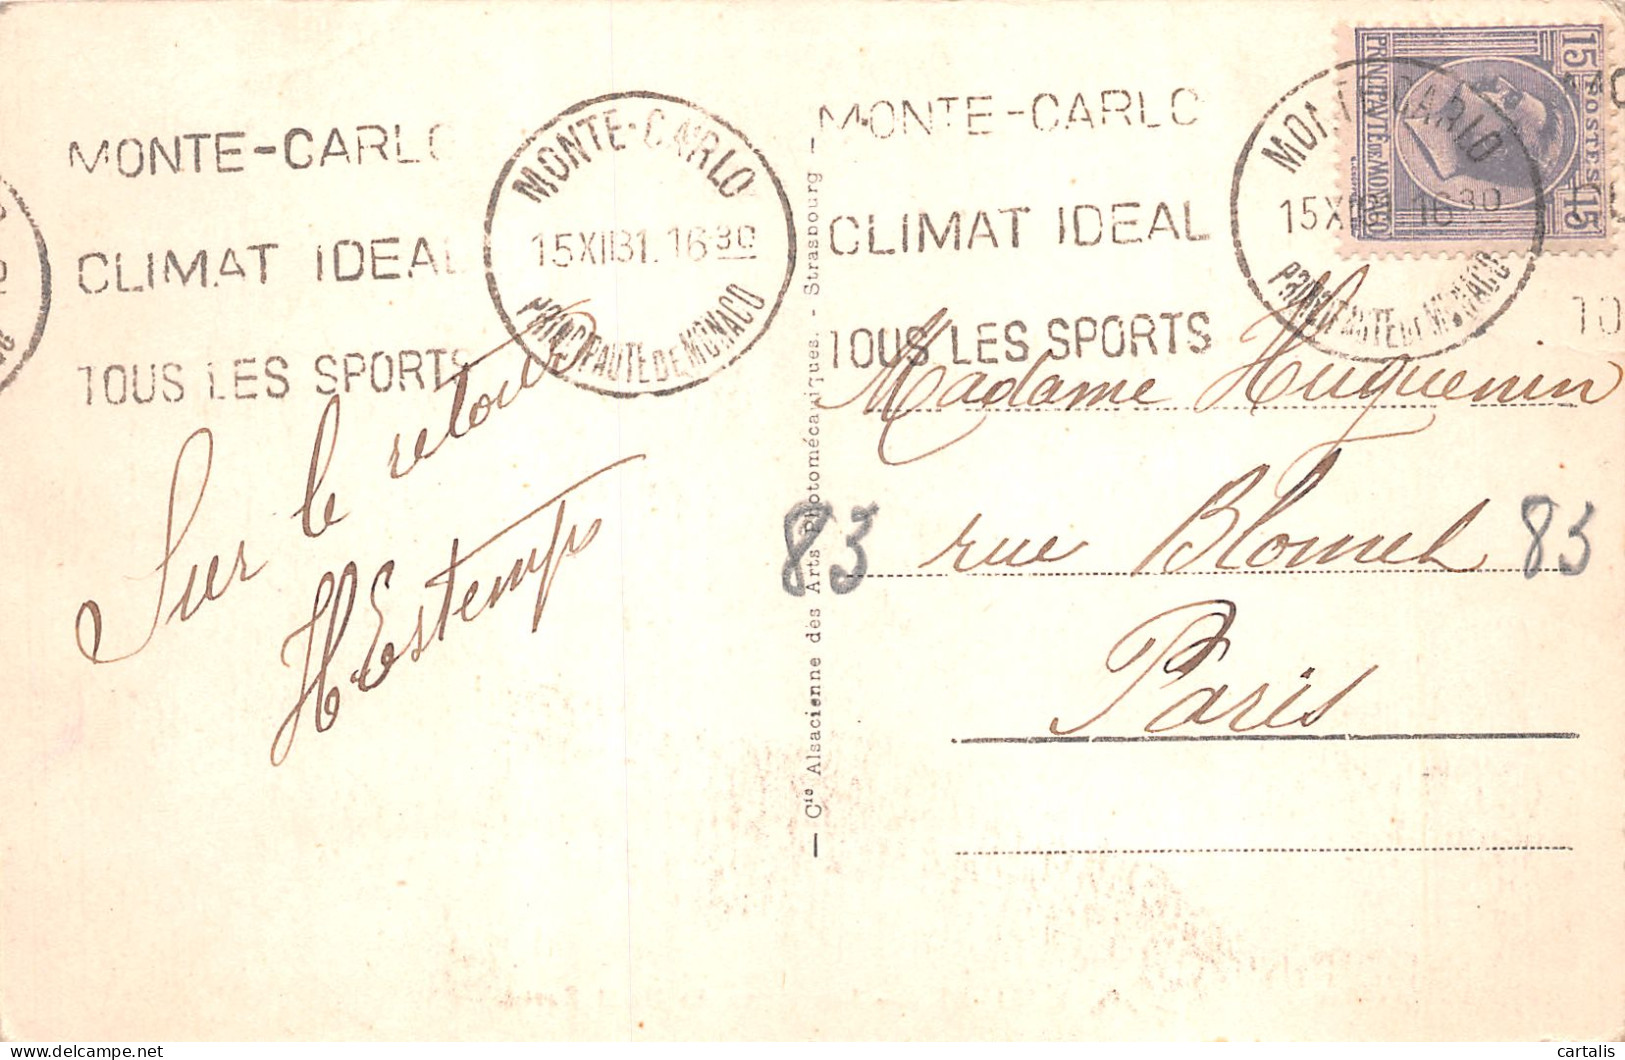 MONTE-CARLO
CLIMAT IDEAL
TOUS LES SPORTS
MONTE-CARLO
15XII31. 16 30
PRINCIPAUTE DE MONACO
MONTE-CARLO
CLIMAT IDEAL
TOUS LES SPORTS
MONTE-CARLO
15XII 16 30
PRINCIPAUTE DE MONACO
15 POSTES 15
PRINCIPAUTÉ DE MONACO
Sur le retour
H. Estemps
— Cie Alsacienne des Arts Photomécaniques. - Strasbourg —
Madame Huguenin
83 rue Blomet 83
Paris
cartalis